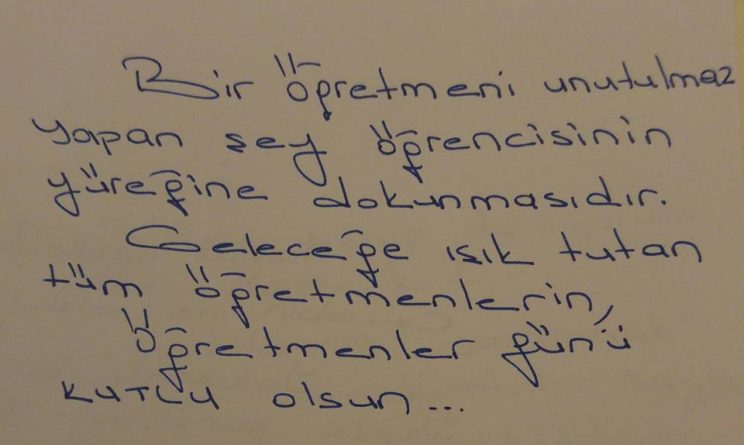 Bir öğretmeni unutulmaz
yapan şey öğrencisinin
yüreğine dokunmasıdır.
Geleceğe ışık tutan
tüm öğretmenlerin,
Öğretmenler günü
kutlu olsun...